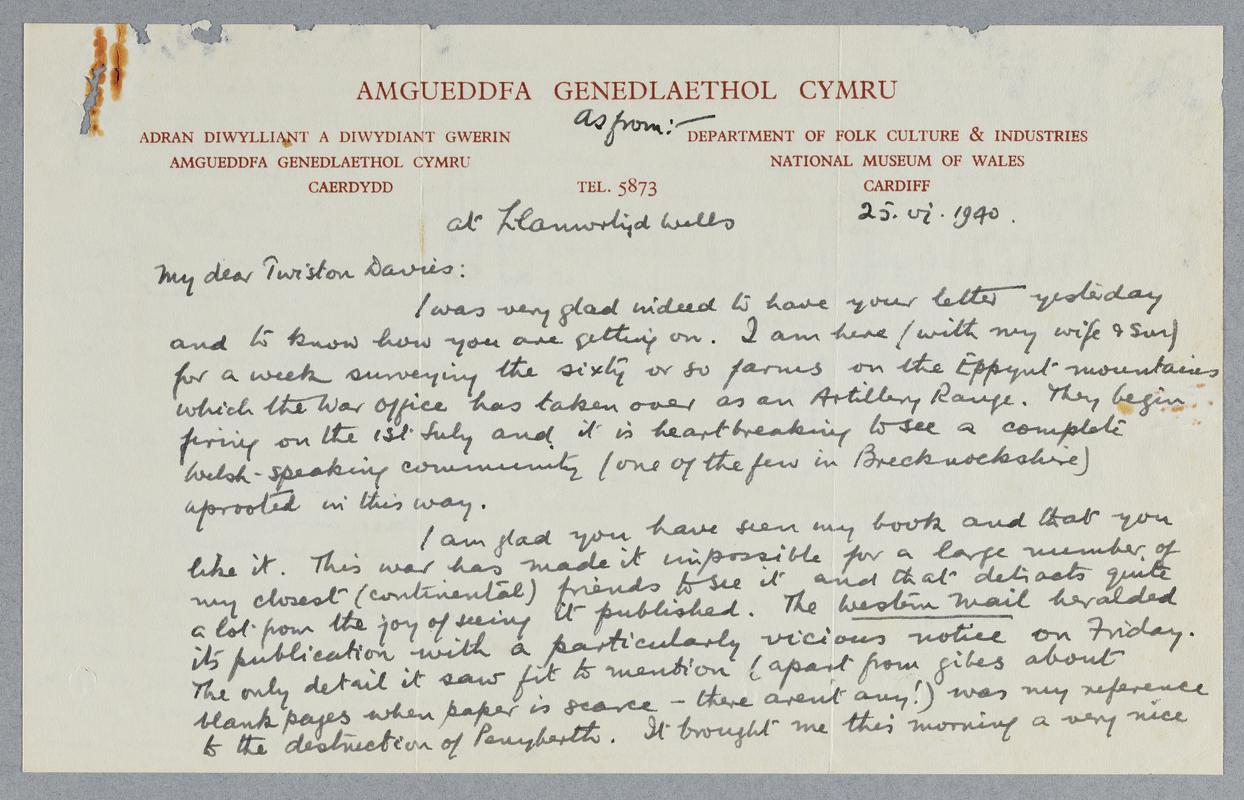 AMGUEDDFA GENEDLAETHOL CYMRU
as from:—
ADRAN DIWYLLIANT A DIWYDIANT GWERIN
AMGUEDDFA GENEDLAETHOL CYMRU
CAERDYDD
TEL. 5873
DEPARTMENT OF FOLK CULTURE & INDUSTRIES
NATIONAL MUSEUM OF WALES
CARDIFF
at Llanwrtyd Wells
25. vi. 1940.
My dear Twiston Davies:
I was very glad indeed to have your letter yesterday
and to know how you are getting on. I am here (with my wife & son)
for a week surveying the sixty or so farms on the Eppynt mountains
which the War Office has taken over as an Artillery Range. They begin
firing on the 1st July and it is heartbreaking to see a complete
Welsh-speaking community (one of the few in Brecknockshire)
uprooted in this way.
I am glad you have seen my book and that you
like it. This war has made it impossible for a large number of
my closest (continental) friends to see it and that detracts quite
a lot from the joy of seeing it published. The Western Mail heralded
its publication with a particularly vicious notice on Friday.
The only detail it saw fit to mention (apart from gibes about
blank pages when paper is scarce - there aren't any!) was my reference
to the destruction of Penyberth. It brought me this morning a very nice